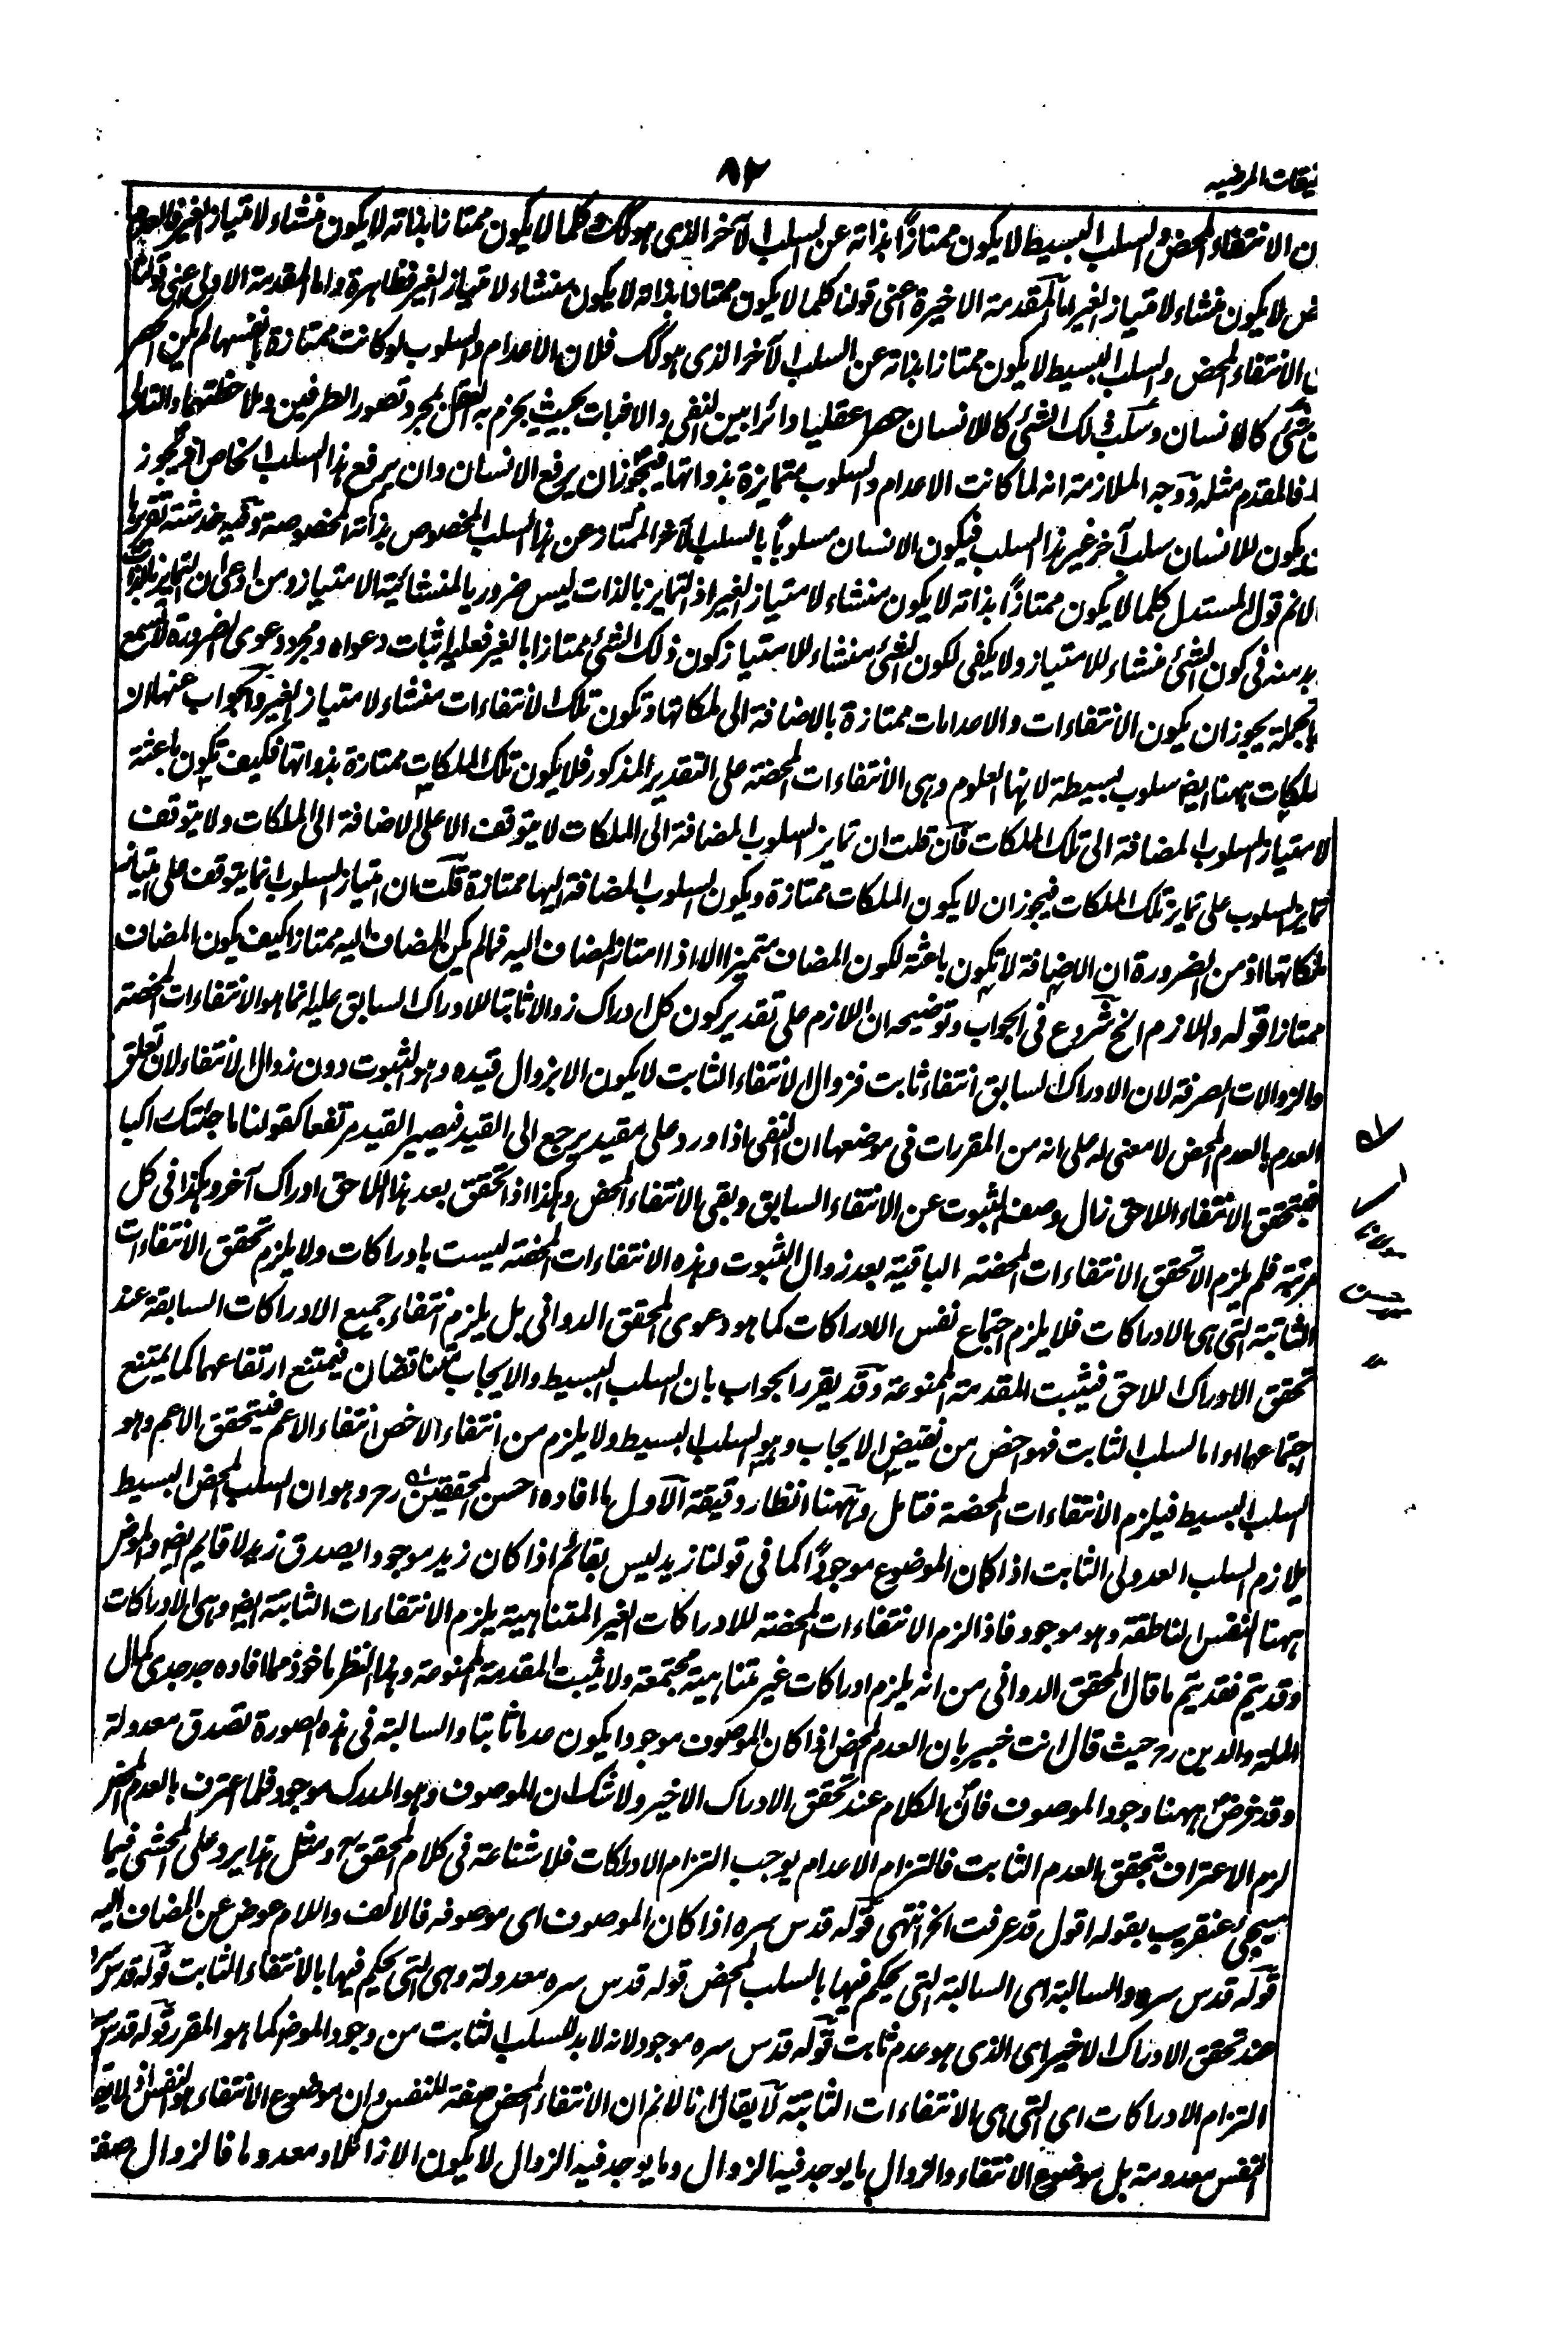 يقات المرضيه
٨٢
ن الانتفاء المحض والسلب البسيط لا يكون ممتازاً بذاته عن السلب الآخر الذى هو كك وكلما لا يكون ممتازا بذاته لا يكون منشاء لامتياز الغير فالعدم
ض لا يكون منشاء لامتياز الغير اما المقدمة الاخيرة اعنى قولنا كلما لا يكون ممتازا بذاته لا يكون منشاء لامتياز الغير فظاهرة واما المقدمة الاولى اعنى قولنا
ن الانتفاء المحض والسلب البسيط لا يكون ممتازا بذاته عن السلب الآخر الذى هو كك فلان الاعدام والسلوب لو كانت ممتازة بانفسها لم يكن الحصر
شئ كالانسان وسلب ذلك الشئ كاللانسان حصرا عقليا دائرا بين النفى والاثبات بحيث يجزم به العقل بمجرد تصور الطرفين وملاحظتهما والتالى
فالمقدم مثله ووجه الملازمة انه لما كانت الاعدام والسلوب متمايزة بذواتها فيجوز ان يرفع الانسان وان يرفع هذا السلب الخاص اذ يجوز
ن يكون للانسان سلب آخر غير هذا السلب فيكون الانسان مسلوبا بالسلب الآخر الممتاز عن هذا السلب المخصوص بذاته المخصوصة وفيه خدشة تقريرها
لا نم قول المستدل كلما لا يكون ممتازاً بذاته لا يكون منشاء لامتياز الغير اذ التمايز بالذات ليس ضروريا لمنشائية الامتياز ومن ادعى ان التمايز بالذات
بد منه فى كون الشئ منشاء للامتياز ولا يكفى لكون الشئ منشاء للامتياز كون ذلك الشئ ممتازا بالغير فعليه اثبات دعواه ومجرد دعوى الضرورة لا تسمع
بالجملة يجوز ان يكون الانتفاءات والاعدامات ممتازة بالاضافة الى ملكاتها وتكون تلك الانتفاءات منشاء لامتياز الغير والجواب عنها ان
لملكات ههنا ايضا سلوب بسيطة لانها العلوم وهى الانتفاءات المحضة على التقدير المذكور فلا يكون تلك الملكات ممتازة بذواتها فكيف تكون باعثة
لامتياز السلوب المضافة الى تلك الملكات فان قلت ان تمايز السلوب المضافة الى الملكات لا يتوقف الا على الاضافة الى الملكات ولا يتوقف
تمايز السلوب على تمايز تلك الملكات فيجوز ان لا يكون الملكات ممتازة ويكون السلوب المضافة اليها ممتازة قلت ان امتياز السلوب انما يتوقف على امتياز
ملكاتها اذ من الضرورة ان الاضافة لا تكون باعثة لكون المضاف متميزا الا اذا امتاز المضاف اليه فما لم يكن المضاف اليه ممتازا كيف يكون المضاف
ممتازا قوله واللازم الخ شروع فى الجواب وتوضيحه ان اللازم على تقدير كون كل ادراك زوالا ثابتا للادراك السابق عليه انما هو الانتفاءات المحضة
والزوالات الصرفة لان الادراك السابق انتفاء ثابت فزوال الانتفاء الثابت لا يكون الا بزوال قيده وهو الثبوت دون زوال الانتفاء لان تعلق
العدم بالعدم المحض لا معنى له على انه من المقررات فى موضعها ان النفى اذا ورد على مقيد يرجع الى القيد فيصير القيد مرتفعا كقولنا ما جئتك راكبا
فيتحقق الانتفاء اللاحق زال وصف الثبوت عن الانتفاء السابق وبقى الانتفاء المحض وهكذا اذا تحقق بعد هذا اللاحق ادراك آخر وهكذا فى كل
مرتبة فلم يلزم الا تحقق الانتفاءات المحضة الباقية بعد زوال الثبوت وهذه الانتفاءات المحضة ليست بادراكات ولا يلزم تحقق الانتفاءات
الثابتة التى هى الادراكات فلا يلزم اجتماع نفس الادراكات كما هو دعوى المحقق الدوانى بل يلزم انتفاء جميع الادراكات السابقة عند
تحقق الادراك اللاحق فيثبت المقدمة الممنوعة وقد يقرر الجواب بان السلب البسيط والايجاب متناقضان فيمتنع ارتفاعهما كما يمتنع
اجتماعهما واما السلب الثابت فهو اخص من نقيض الايجاب وهو السلب البسيط ولا يلزم من انتفاء الاخص انتفاء الاعم فيتحقق الاعم وهو
السلب البسيط فيلزم الانتفاءات المحضة فتامل وههنا انظار دقيقة الاول ما افاده احسن المحققين رح وهو ان السلب المحض البسيط
يلازم السلب العدولى الثابت اذا كان الموضوع موجودا كما فى قولنا زيد ليس بقائم اذا كان زيد موجودا يصدق زيد لا قايم ايضا والموض
ههنا النفس الناطقة وهو موجود فاذا لزم الانتفاءات المحضة للادراكات الغير المتناهية يلزم الانتفاءات الثابتة ايضا وهى الادراكات
وقد يتم فقد يتم ما قال المحقق الدوانى من انه يلزم ادراكات غير متناهية مجتمعة ولا يثبت المقدمة الممنوعة وهذا النظر ماخوذ مما افاده جد جدى كمال
الملة والدين رح حيث قال انت خبير بان العدم المحض اذا كان الموصوف موجودا يكون عدما ثابتا والسالبة فى هذه الصورة تصدق معدولة
وقد فرض ههنا وجود الموصوف فان الكلام عند تحقق الادراك الاخير ولا شك ان الموصوف وهو المدرك موجود فلما اعترف بالعدم المحض
لزم الاعتراف بتحقق العدم الثابت فالتزام الاعدام يوجب التزام الادراكات فلا شناعة فى كلام المحقق ومثل هذا يرد على المحشى فيما
سيجئ عنقريب بقوله اقول قد عرفت الخ انتهى قوله قدس سره اذا كان الموصوف اى موصوفه فالالف واللام عوض عن المضاف اليه
قوله قدس سره والسالبة اى السالبة التى يحكم فيها بالسلب المحض قوله قدس سره معدولة وهى التى يحكم فيها بالانتفاء الثابت قوله قدس سره
عند تحقق الادراك الاخير اى الذى هو عدم ثابت قوله قدس سره موجود لانه لا بد للسلب الثابت من وجود الموض كما هو المقرر قوله قدس سره
التزام الادراكات اى التى هى الانتفاءات الثابتة لا يقال انا لا نم ان الانتفاء المحض صفة للنفس وان موضوع الانتفاء هو النفس
النفس معدومة بل موضوع الانتفاء والزوال ما يوجد فيه الزوال وما يوجد فيه الزوال لا يكون الا زائلا ومعدوما فالزوال صفة
مولانا
حسن